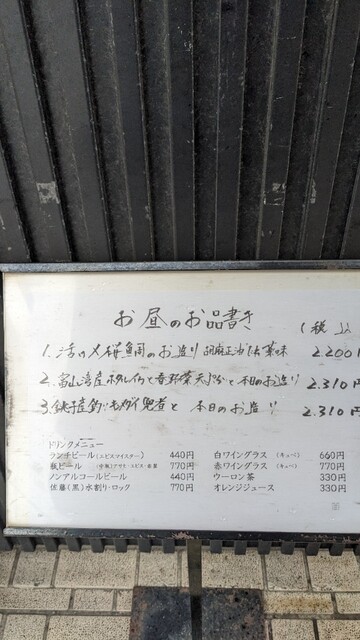 お昼のお品書き
(税込
1. 活〆桜鯛のお造り 胡麻正油と薬味 2,200
2. 富山湾産ホタルイカと春野菜天ぷらと本日のお造り 2,310
3. 銚子産釣り金目鯛 兜煮と 本日のお造り 2,310
ドリンクメニュー
ランチビール(エビスマイスター) 440円 白ワイングラス (キュベ) 660円
瓶ビール 770円 赤ワイングラス (キュベ) 770円
ノンアルコールビール 440円 ウーロン茶 330円
佐藤(黒)水割り・ロック 770円 オレンジジュース 330円